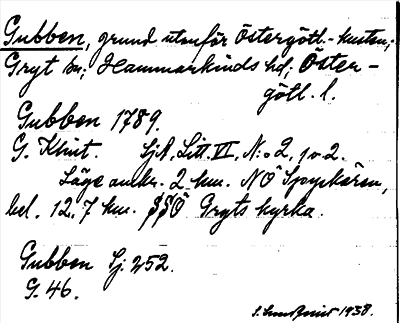 Gubben, grund utanför Östergötl.-kusten;
Gryt sn; Hammarkinds hd; Öster-
götl. l.
Gubben 1789.
G. Klint. Sjk. Litt. VI, N:o 2, 1 o 2.
Läge omkr. 2 km. NO Spyckären,
bel. 12,7 km. SSO Gryts kyrka.
Gubben Sj. 252.
G. 46.
1938.